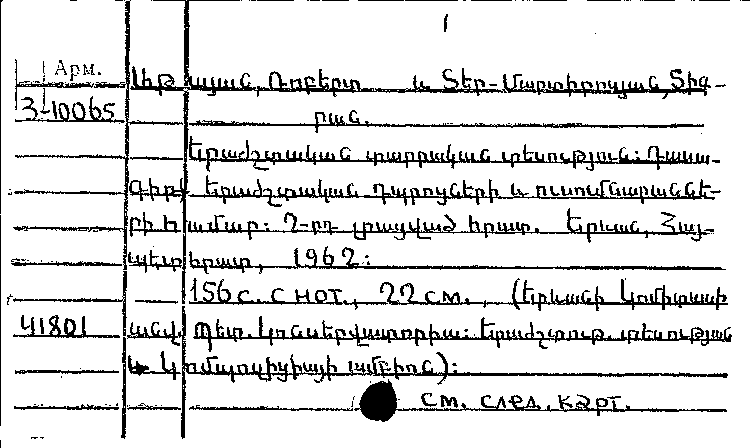 1
Арм.
Աթայան, Ռոբերտ և Տեր-Մարտիրոսյան, Տիգ-
3-10065
րան.
Երաժշտական տարրական տեսություն: Դասա-
գիրք երաժշտական դպրոցների և ուսումնարաննե-
րի համար: 2-րդ լրացված հրատ. Երևան, Հայ-
պետհրատ, 1962:
156 с. с нот., 22 см., (Երևանի Կոմիտասի
41801
անվ. Պետ. Կոնսերվատորիա: Երաժշտութ. տեսության
և կոմպոզիցիայի ամբիոն):
см. след. карт.